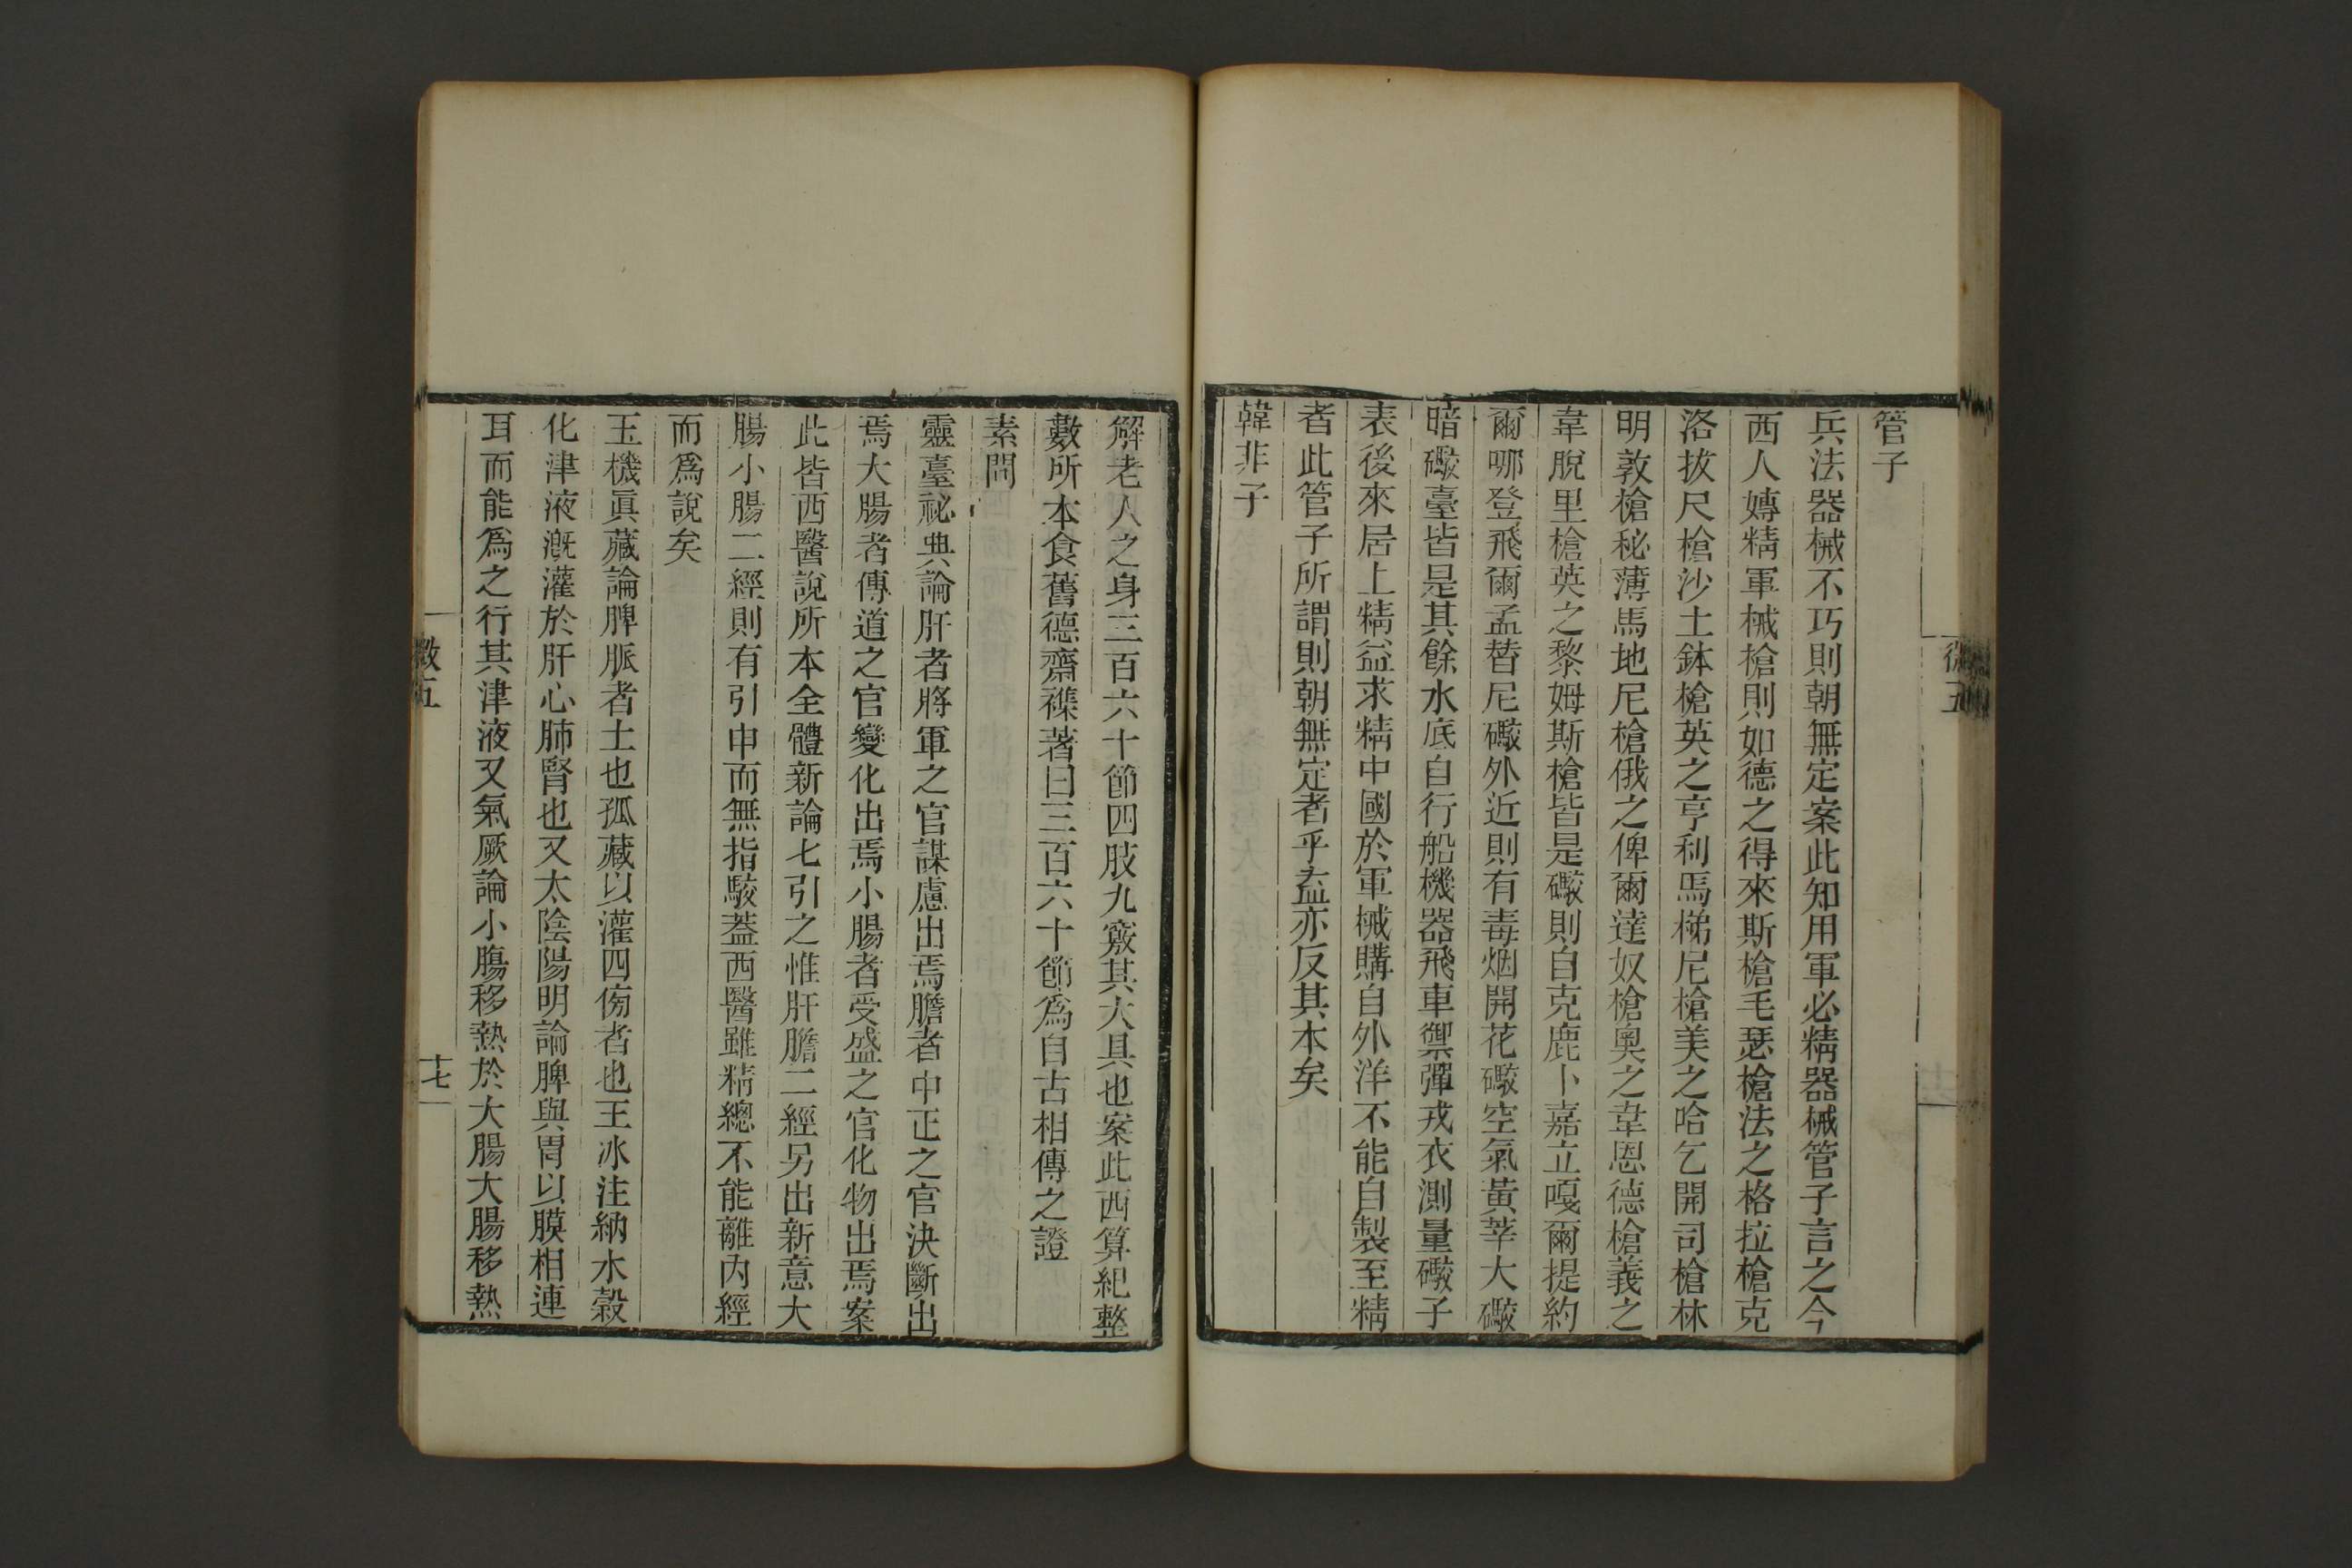 管子
兵法器械不巧則朝無定案此知用軍必精器械管子言之今
西人專精軍械槍則如德之得來斯槍毛瑟槍法之格拉槍克
洛拔尺槍沙土鉢槍英之亨利馬梯尼槍美之哈乞開司槍林
明敦槍秘薄馬地尼槍俄之俾爾達奴槍奧之韋恩德槍義之
韋脫里槍英之黎姆斯槍皆是礮則自克鹿卜嘉立嘎爾提約
爾哪登飛爾孟替尼礮外近則有毒烟開花礮空氣黃莘大礮
暗礮臺皆是其餘水底自行船機器飛車禦彈戎衣測量礮子
表後來居上精益求精中國於軍械購自外洋不能自製至精
者此管子所謂則朝無定者乎盍亦反其本矣
韓非子
解老人之身三百六十節四肢九竅其大具也案此西算紀整
數所本食舊德齋襍著曰三百六十節爲自古相傳之證
素問
靈臺祕典論肝者將軍之官謀慮出焉膽者中正之官決斷出
焉大腸者傳道之官變化出焉小腸者受盛之官化物出焉案
此皆西醫說所本全體新論七引之惟肝膽二經另出新意大
腸小腸二經則有引申而無指駁蓋西醫雖精總不能離內經
而爲說矣
玉機眞藏論脾脈者土也孤藏以灌四傍者也王冰注納水穀
化津液溉灌於肝心肺腎也又太陰陽明論脾與胃以膜相連
耳而能爲之行其津液又氣厥論小腸移熱於大腸大腸移熱
徵五
十七